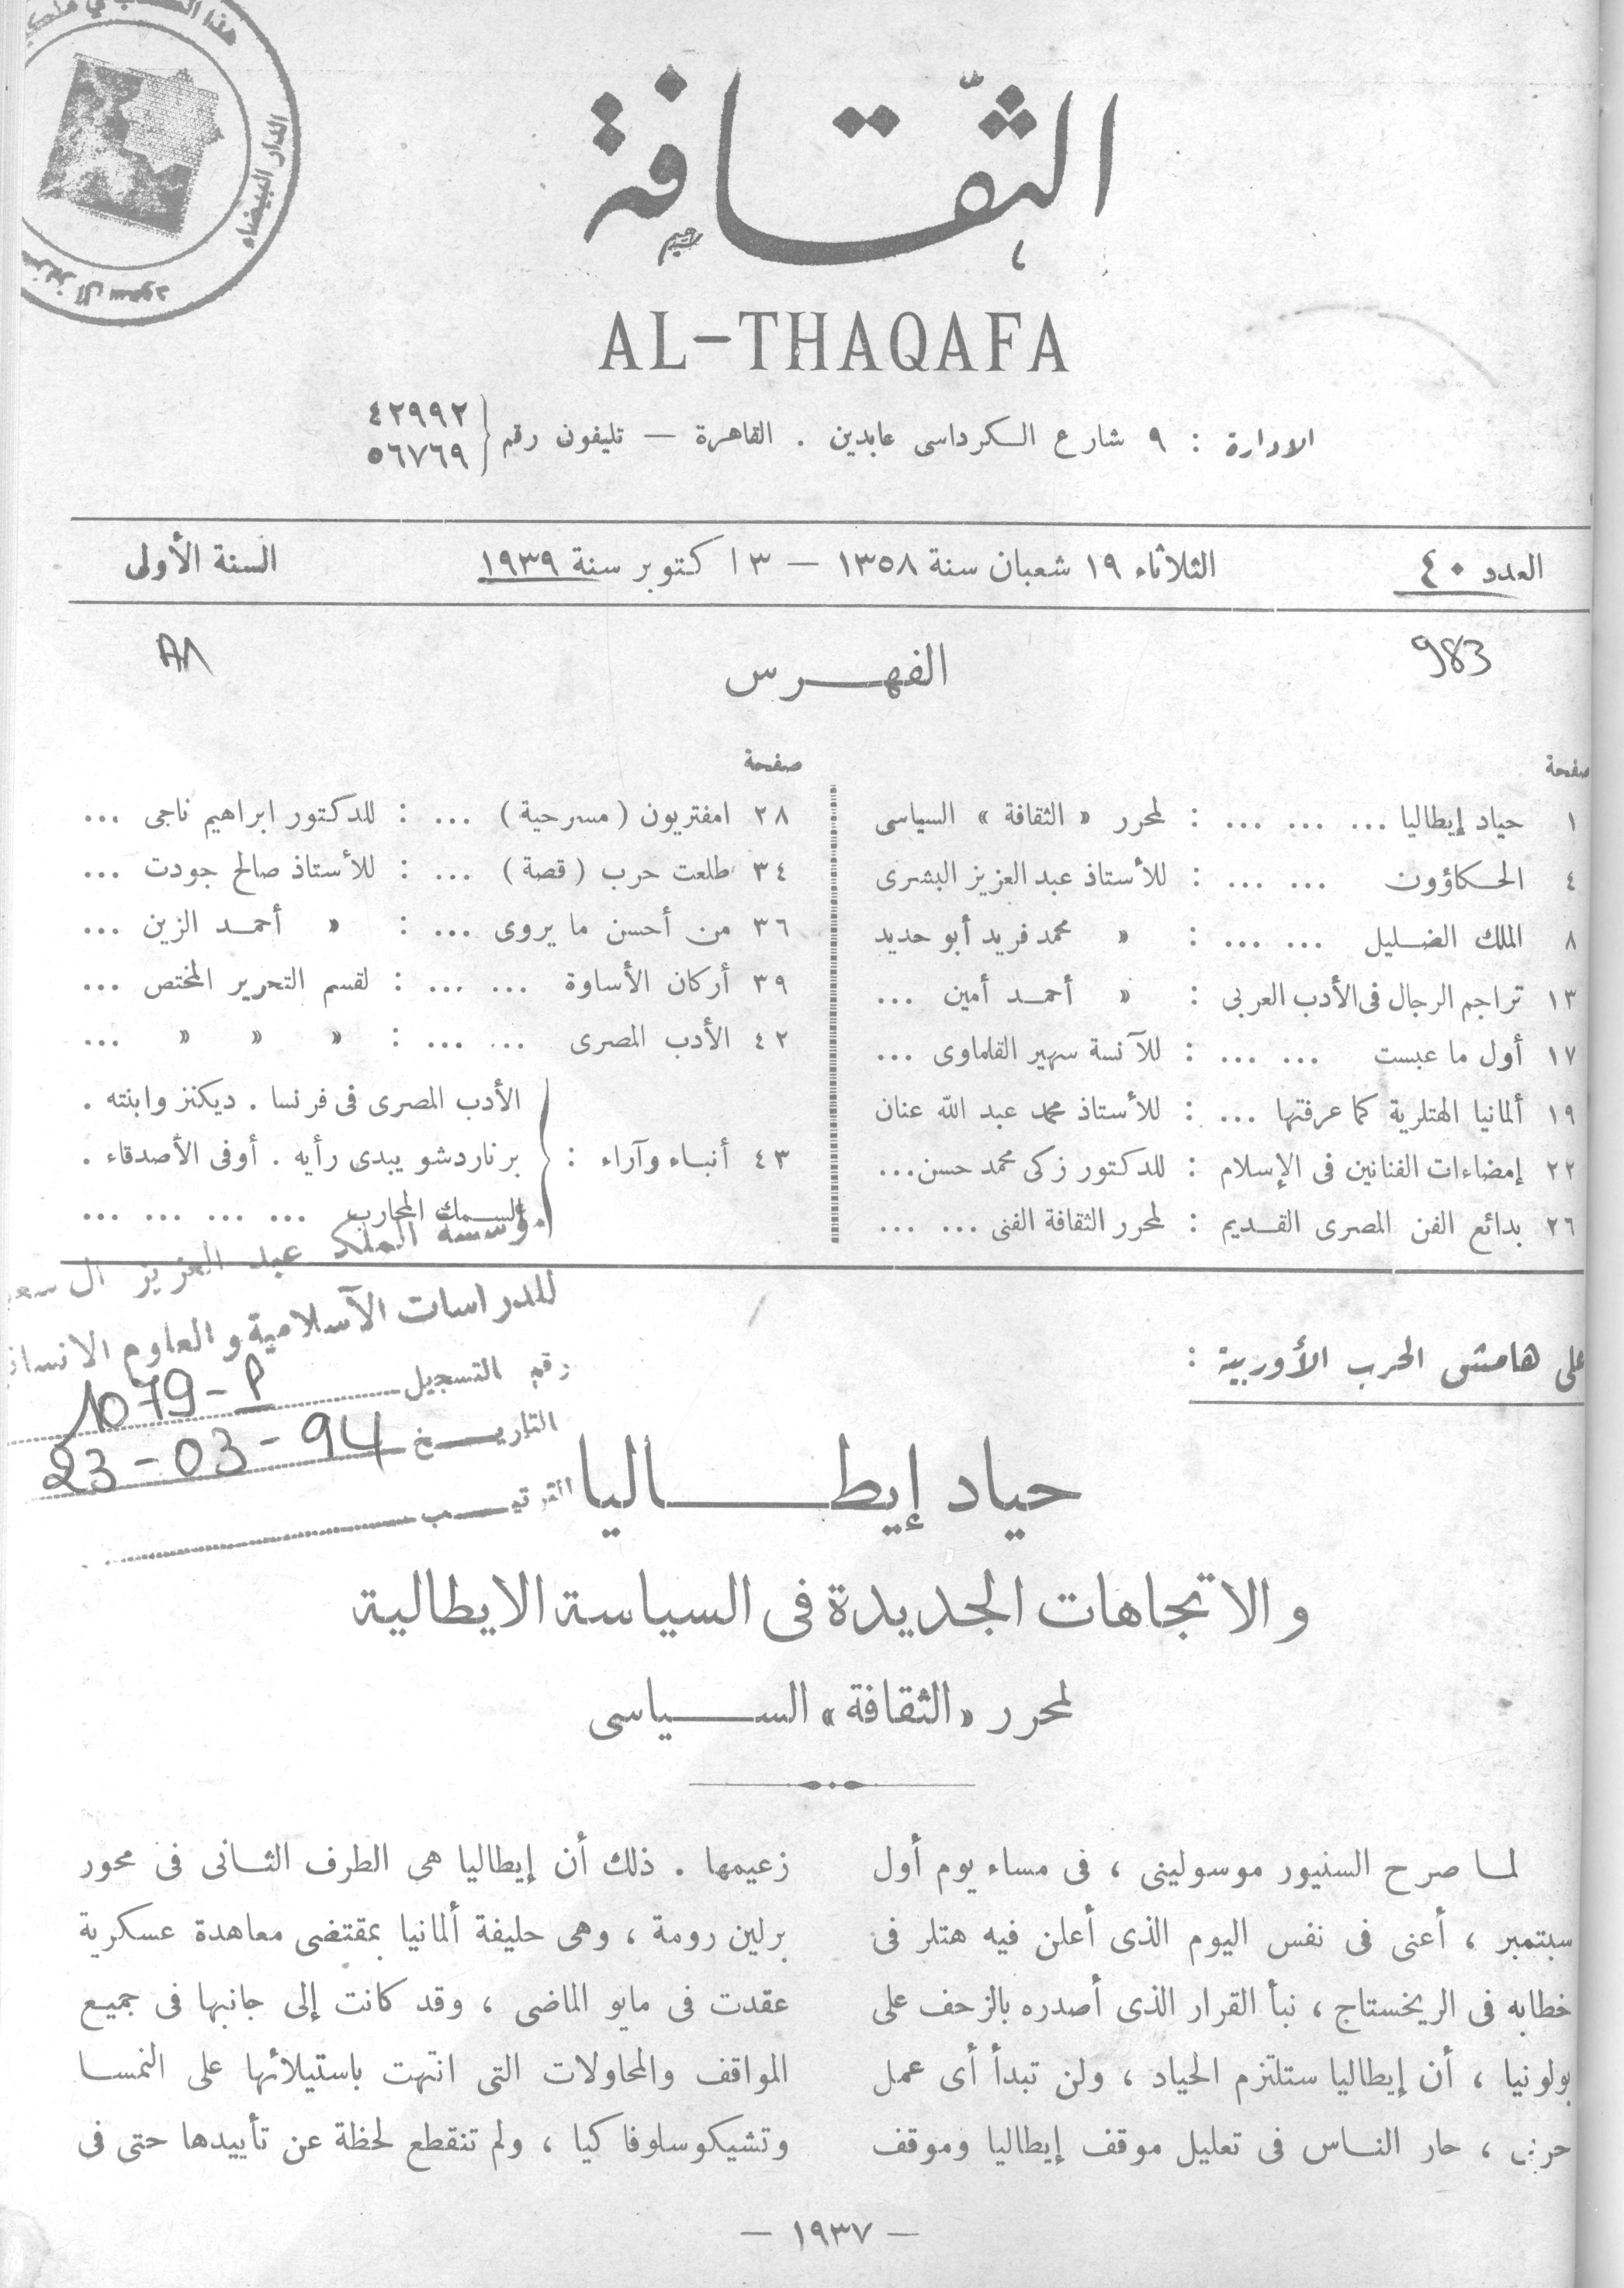 هذا الكتاب في ملك
الدار البيضاء
عزيز آل سعود
الثقافة
AL-THAQAFA
الإدارة : ٩ شارع الكرداسى عابدين . القاهرة — تليفون رقم { ٤٢٩٩٢
٥٦٧٦٩
العدد ٤٠
الثلاثاء ١٩ شعبان سنة ١٣٥٨ — ٣ اكتوبر سنة ١٩٣٩
السنة الأولى
983
الفهرس
صفحة
١ حياد إيطاليا ... ... ... : لمحرر « الثقافة » السياسى
٤ الحكاؤون ... ... : للأستاذ عبد العزيز البشرى
٨ الملك الضليل ... ... : » محمد فريد أبو حديد
١٣ تراجم الرجال فى الأدب العربى : » أحمد أمين ...
١٧ أول ما عبست ... ... : للآنسة سهير القلماوى ...
١٩ ألمانيا الهتلرية كما عرفتها ... : للأستاذ محمد عبد الله عنان
٢٢ إمضاءات الفنانين فى الإسلام : للدكتور زكى محمد حسن...
٢٦ بدائع الفن المصرى القديم : لمحرر الثقافة الفنى ... ...
صفحة
٢٨ امفتريون (مسرحية) ... : للدكتور ابراهيم ناجى ...
٣٤ طلعت حرب (قصة) ... : للأستاذ صالح جودت ...
٣٦ من أحسن ما يروى ... : » أحمد الزين ...
٣٩ أركان الأساوة ... ... : لقسم التحرير المختص ...
٤٢ الأدب المصرى ... ... : » » » ...
٤٣ أنباء وآراء : { الأدب المصرى فى فرنسا . ديكنز وابنته .
برناردشو يبدى رأيه . أوفى الأصدقاء .
السمك المحارب ... ... ... ...
مؤسسة الملك عبد العزيز آل سعو
للدراسات الآسلامية والعلوم الانسان
رقم التسجيل 1079-P
التاريخ 23-03-94
الترتيب
على هامش الحرب الأوربية :
حياد إيطاليا
والاتجاهات الجديدة فى السياسة الايطالية
لمحرر «الثقافة» السياسى
لما صرح السنيور موسولينى ، فى مساء يوم أول
سبتمبر ، أعنى فى نفس اليوم الذى أعلن فيه هتلر فى
خطابه فى الريخستاج ، نبأ القرار الذى أصدره بالزحف على
بولونيا ، أن إيطاليا ستلتزم الحياد ، ولن تبدأ أى عمل
حربى ، حار الناس فى تعليل موقف إيطاليا وموقف
زعيمها . ذلك أن إيطاليا هى الطرف الثانى فى محور
برلين رومة ، وهى حليفة ألمانيا بمقتضى معاهدة عسكرية
عقدت فى مايو الماضى ، وقد كانت إلى جانبها فى جميع
المواقف والمحاولات التى انتهت باستيلائها على النمسا
وتشيكوسلوفاكيا ، ولم تنقطع لحظة عن تأييدها حتى فى
— ١٩٣٧ —